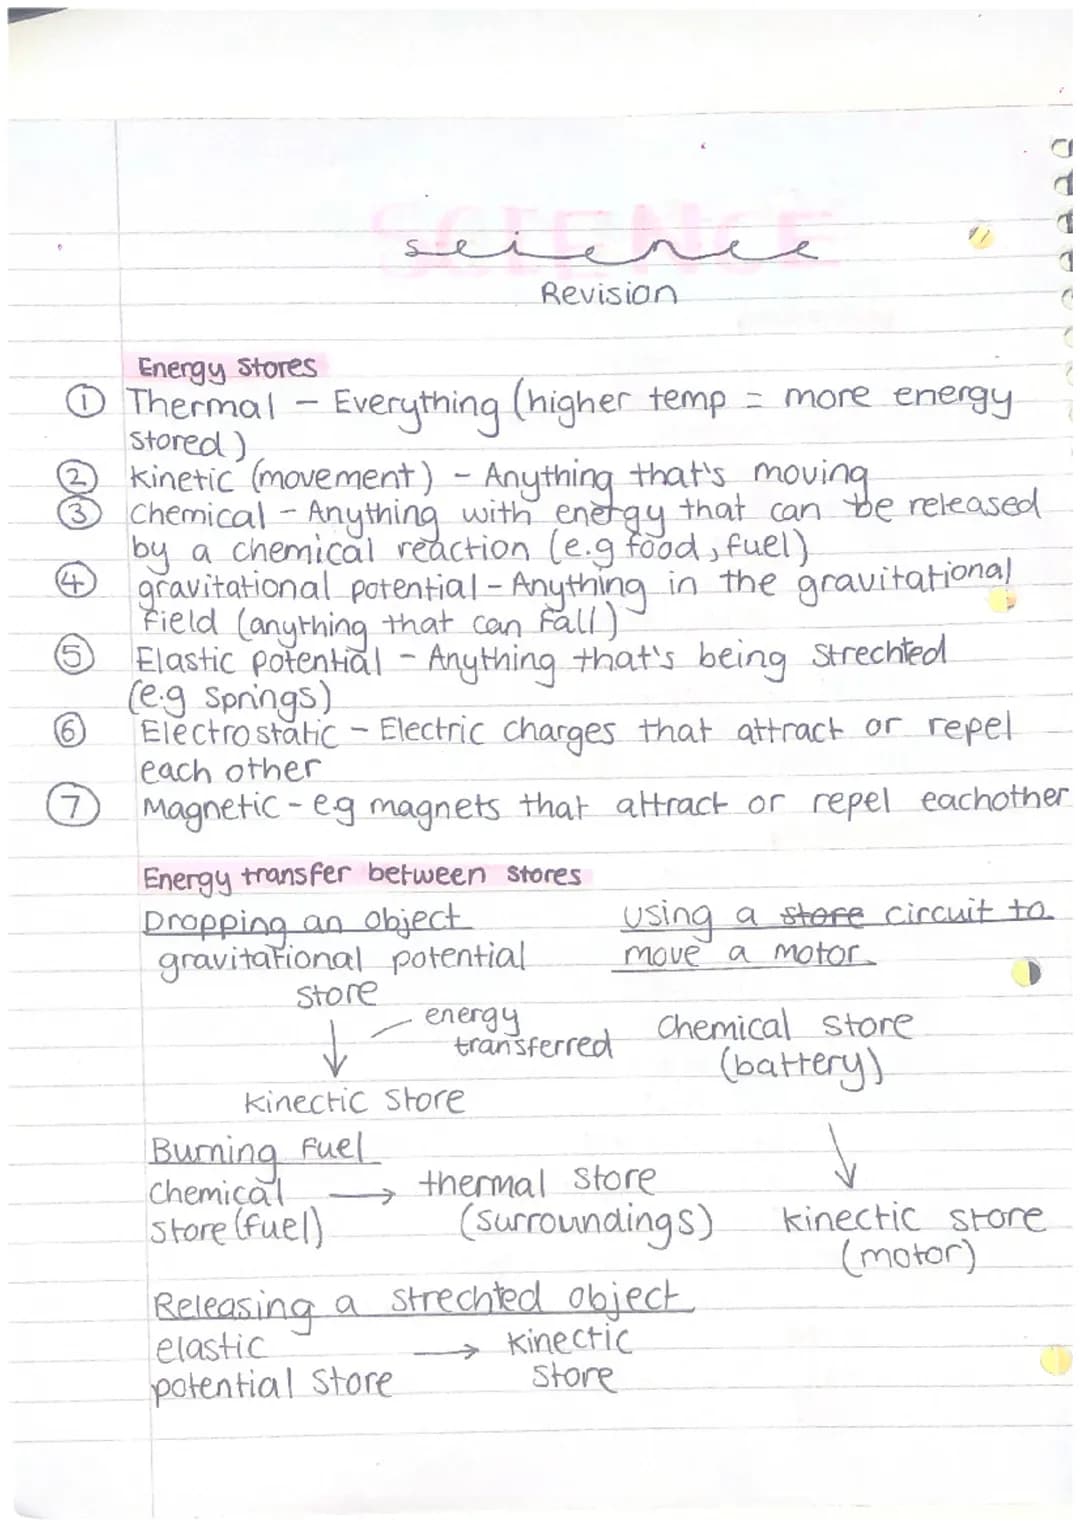 science
Revision
Energy Stores
① Thermal – Everything (higher temp = more energy
stored)
② Kinetic (movement) – Anything that's moving
③ Chemical – Anything with energy that can be released
by a chemical reaction (e.g food, fuel)
④ gravitational potential – Anything in the gravitational
field (anything that can fall)
⑤ Elastic potential – Anything that's being strechted
(e.g springs)
⑥ Electrostatic – Electric charges that attract or repel
each other
⑦ Magnetic – e.g magnets that attract or repel eachother
Energy transfer between stores
Dropping an object
gravitational potential
store
↓ energy
transferred
kinectic store
using a store circuit to
move a motor
Chemical store
(battery)
↓
kinectic store
(motor)
Burning fuel
Chemical → thermal store
store (fuel) (surroundings)
Releasing a strechted object
elastic → kinectic
potential store store